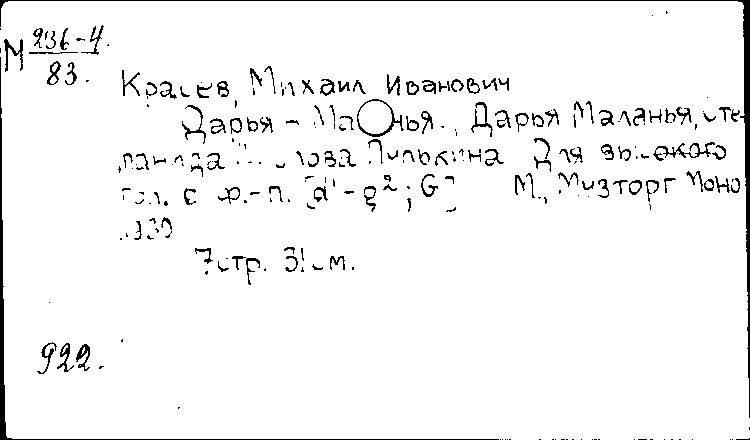 М 236-4
83.
Красев, Михаил Иванович
Дарья - Ма нья., Дарья Маланья, Сте-
панида ... Слова Пулькина Для высокого
гол. с ф.-п. [d¹-g²; G] М., Музторг Моно
1930
7 стр. 31 см.
922.